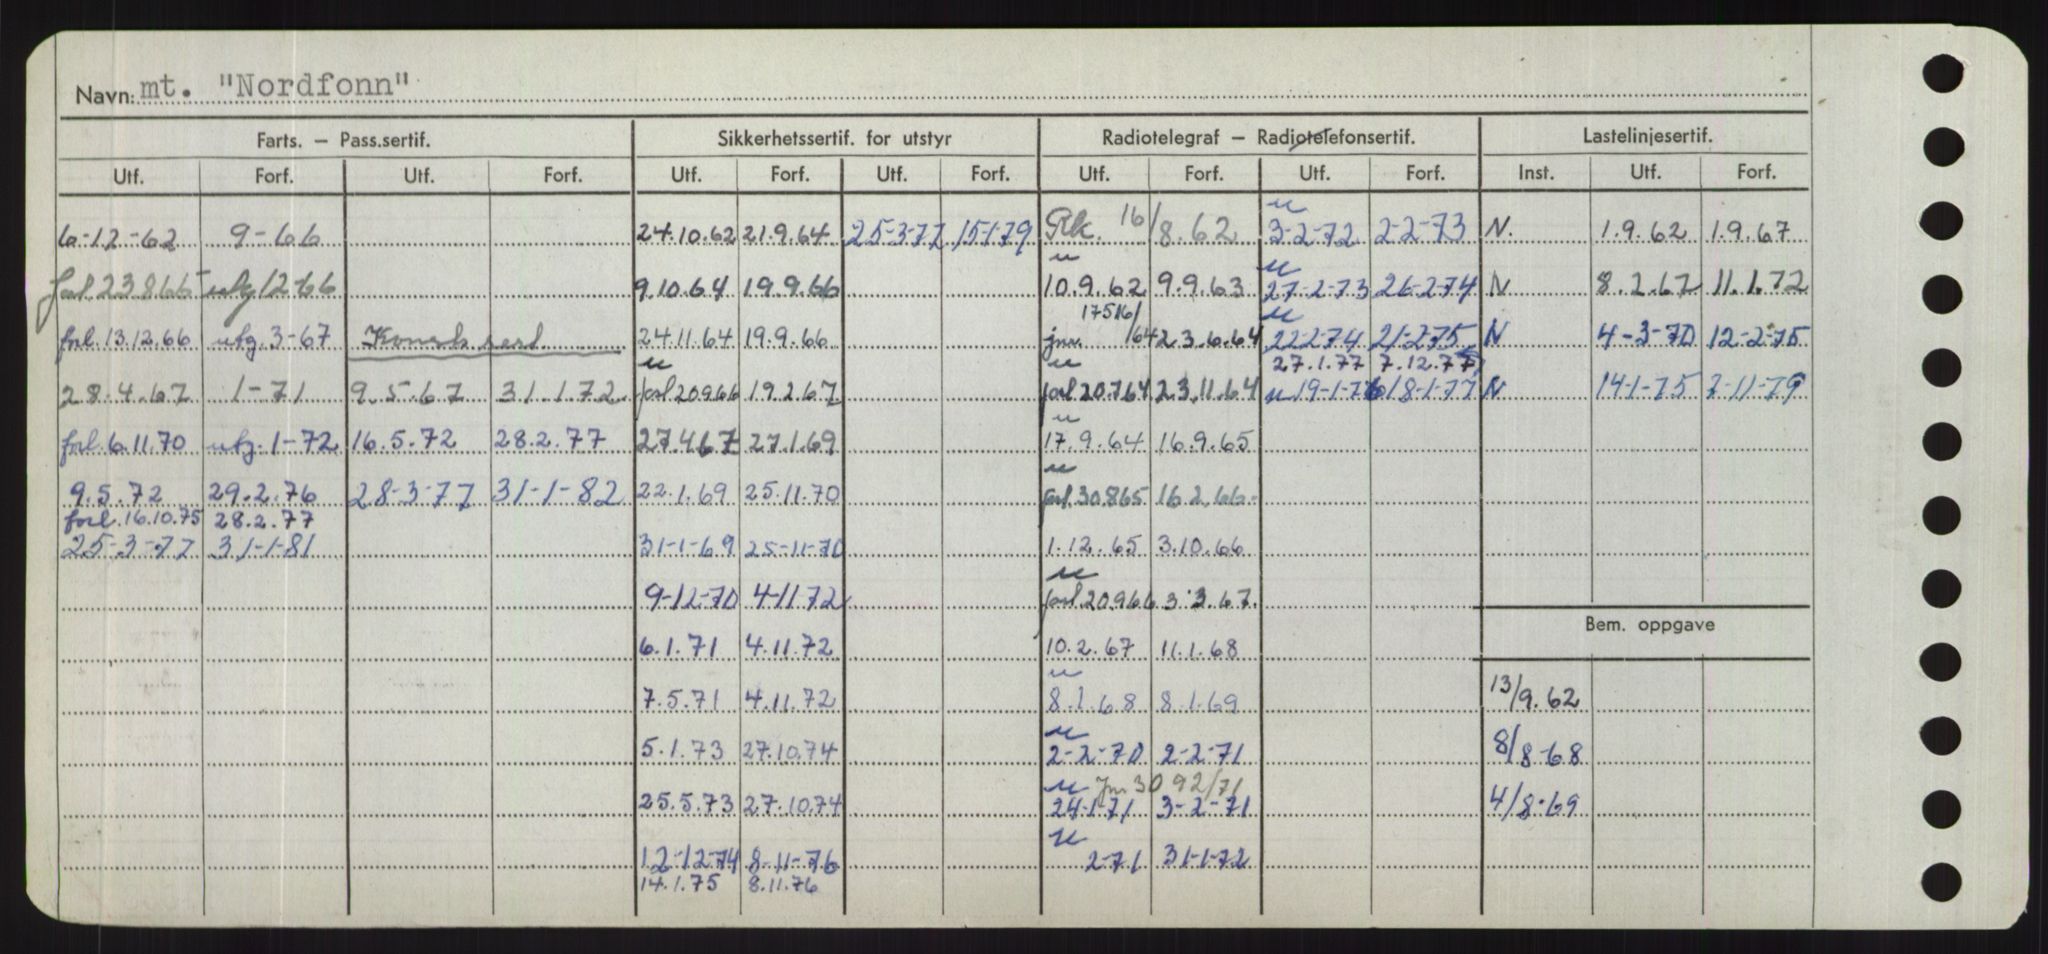 Navn: mt. "Nordfonn"
Farts. – Pass.sertif. Sikkerhetssertif. for utstyr Radiotelegraf – Radiotelefonsertif. Lastelinjesertif.
Utf. Forf. Utf. Forf. Utf. Forf. Utf. Forf. Utf. Forf. Utf. Forf. Inst. Utf. Forf.
6-12-62 9-66 24.10.62 21.9.64 25-3-77 15-1-79 Rk. 16/8.62 3-2-72 2-2-73 N. 1.9.62 1.9.67
forl. 23.8.66 utg 12-66 9.10.64 19.9.66 10.9.62 9.9.63 27-2-73 26-2-74 N 8.2.67 11.1.72
forl. 13.12.66 utg. 3-67 24.11.64 19.9.66 jnr. 17516/64 23.6.64 22-2-74 21-2-75 N 4-3-70 12-2-75
27.1.77 7.12.77
28.4.67 1-71 9.5.67 31.1.72 forl 20.9.66 19.2.67 forl 20.7.64 23.11.64 19-1-76 18-1-77 N 14-1-75 7-11-79
forl. 6.11.70 utg. 1-72 16.5.72 28.2.77 27.4.67 27.1.69 17.9.64 16.9.65
9.5.72 29.2.76 28-3-77 31-1-82 22.1.69 25.11.70 forl. 30.8.65 16.2.66
forl. 16.10.75 28.2.77
25-3-77 31-1-81 31-1-69 25-11-70 1.12.65 3.10.66
9-12-70 4-11-72 forl. 20.9.66 3.3.67.
Bem. oppgave
6.1.71 4.11.72 10.2.67 11.1.68
7.5.71 4.11.72 8.1.68 8.1.69 13/9.62
5.1.73 27.10.74 2-2-70 2-2-71 8/8-68
Jnr 3092/71
25.5.73 27.10.74 24-1-71 3-2-71 4/8-69
12-12-74 8-11-76 2-71 31-1-72
14.1.75 8.11.76